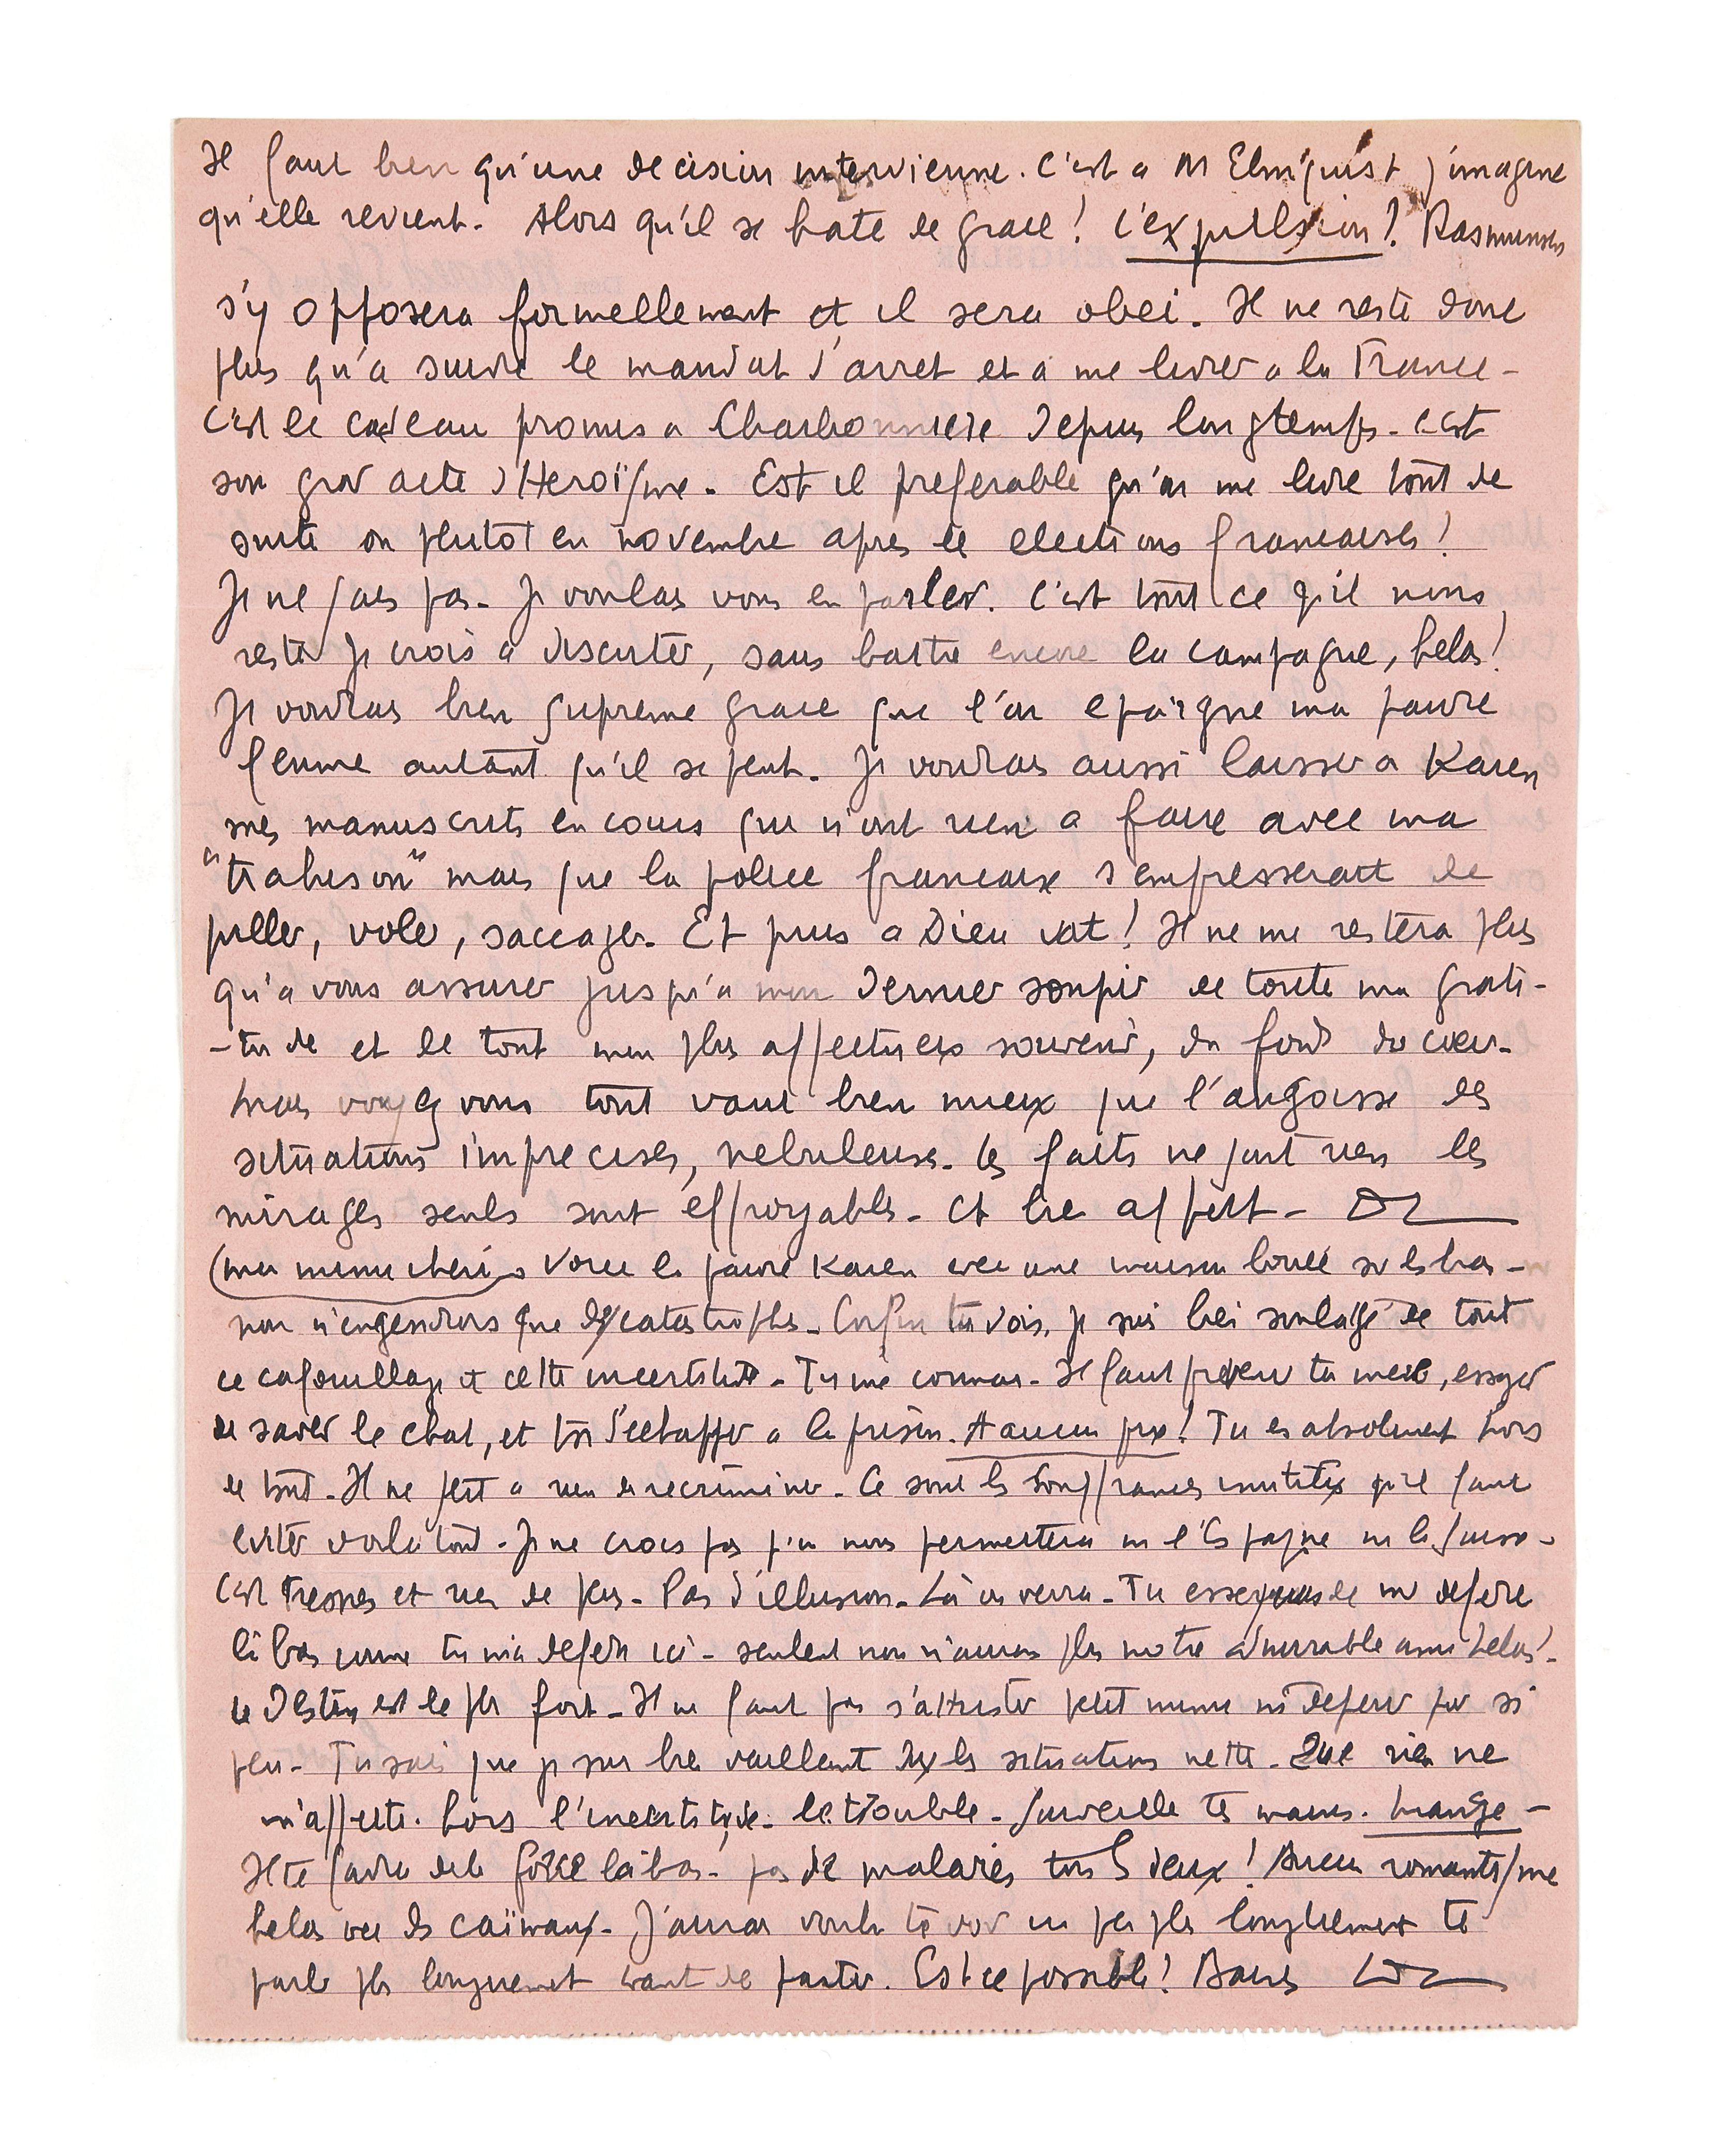 Il faut bien qu'une decision intervienne. C'est a M Elmquist j'imagine
qu'elle revient. Alors qu'il se hate de grace ! L'expulsion ? Rasmussen
s'y opposera formellement et il sera obei. Il ne reste donc
plus qu'a suivre le mandat d'arret et a me livrer a la France -
C'est le cadeau promis a Charbonniere depuis longtemps - c'est
son grd acte d'Heroïsme - Est il preferable qu'on me livre tout de
suite ou plutot en novembre apres les elections francaises ?
Je ne sais pas - Je voulais vous en parler. C'est tout ce qu'il nous
reste je crois à discuter, sans battre encore la campagne, helas !
Je voudrais bien supreme grace que l'on epargne ma pauvre
femme autant qu'il se peut. Je voudrais aussi laisser a Karen
mes manuscrits en cours qui n'ont rien a faire avec ma
"trahison" mais que la police francaise s'empresserait de
piller, voler, saccager. Et puis a Dieu vat ! Il ne me restera plus
qu'a vous assurer jusqu'a mon dernier soupir de toute ma grati-
-tude et de tout mon plus affectueux souvenir, du fond du coeur.
Mais voyez vous tout vaut bien mieux que l'angoisse des
situations imprecises, nebuleuses. Les faits ne sont rien les
mirages seuls sont effroyables - Et bien affect -
(mon mimi cheri, Voici la pauvre Karen avec une maison louée sur les bras -
nous n'engendrons que des catastrophes - Enfin tu vois, je suis bien soulagé de tout
ce cafouillage et cette incertitude - Tu me connais - Il faut prevenir ta mere, essayer
de sauver le chat, et toi d'echapper a la prison. A aucun prix ! Tu es absolument hors
de tout - Il ne sert a rien de recriminer - Ce sont les souffrances inutiles qu'il faut
eviter voila tout - Je ne crois pas qu'on nous permettra ni l'Espagne ni la Suisse -
C'est Fresnes et rien de plus - Pas d'illusion - Là on verra - Tu essayeras de me defendre
là bas comme tu m'a defendu ici - seulement nous n'aurons plus notre admirable ami helas !
Le Destin est le plus fort - Il ne faut pas s'attrister petit mimi ni deperir pour si
peu - Tu sais que je suis bien vaillant dans les situations nettes - Que rien ne
m'affecte. hors l'incertitude - le trouble - Surveille tes maux. Mange -
Il te faudra de la force là bas - pas de malades tous les deux ! Aucun romantisme
helas avec les caïmans - J'aurais voulu te voir un peu plus longuement te
parler plus longuement avant de partir. Est ce possible ? Baisers